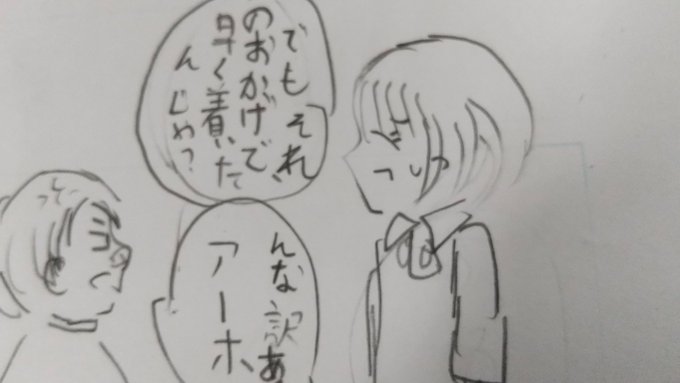 でもそれ
のおかげで、
早く着いた
んじゃ?
んな訳あ
アーホ